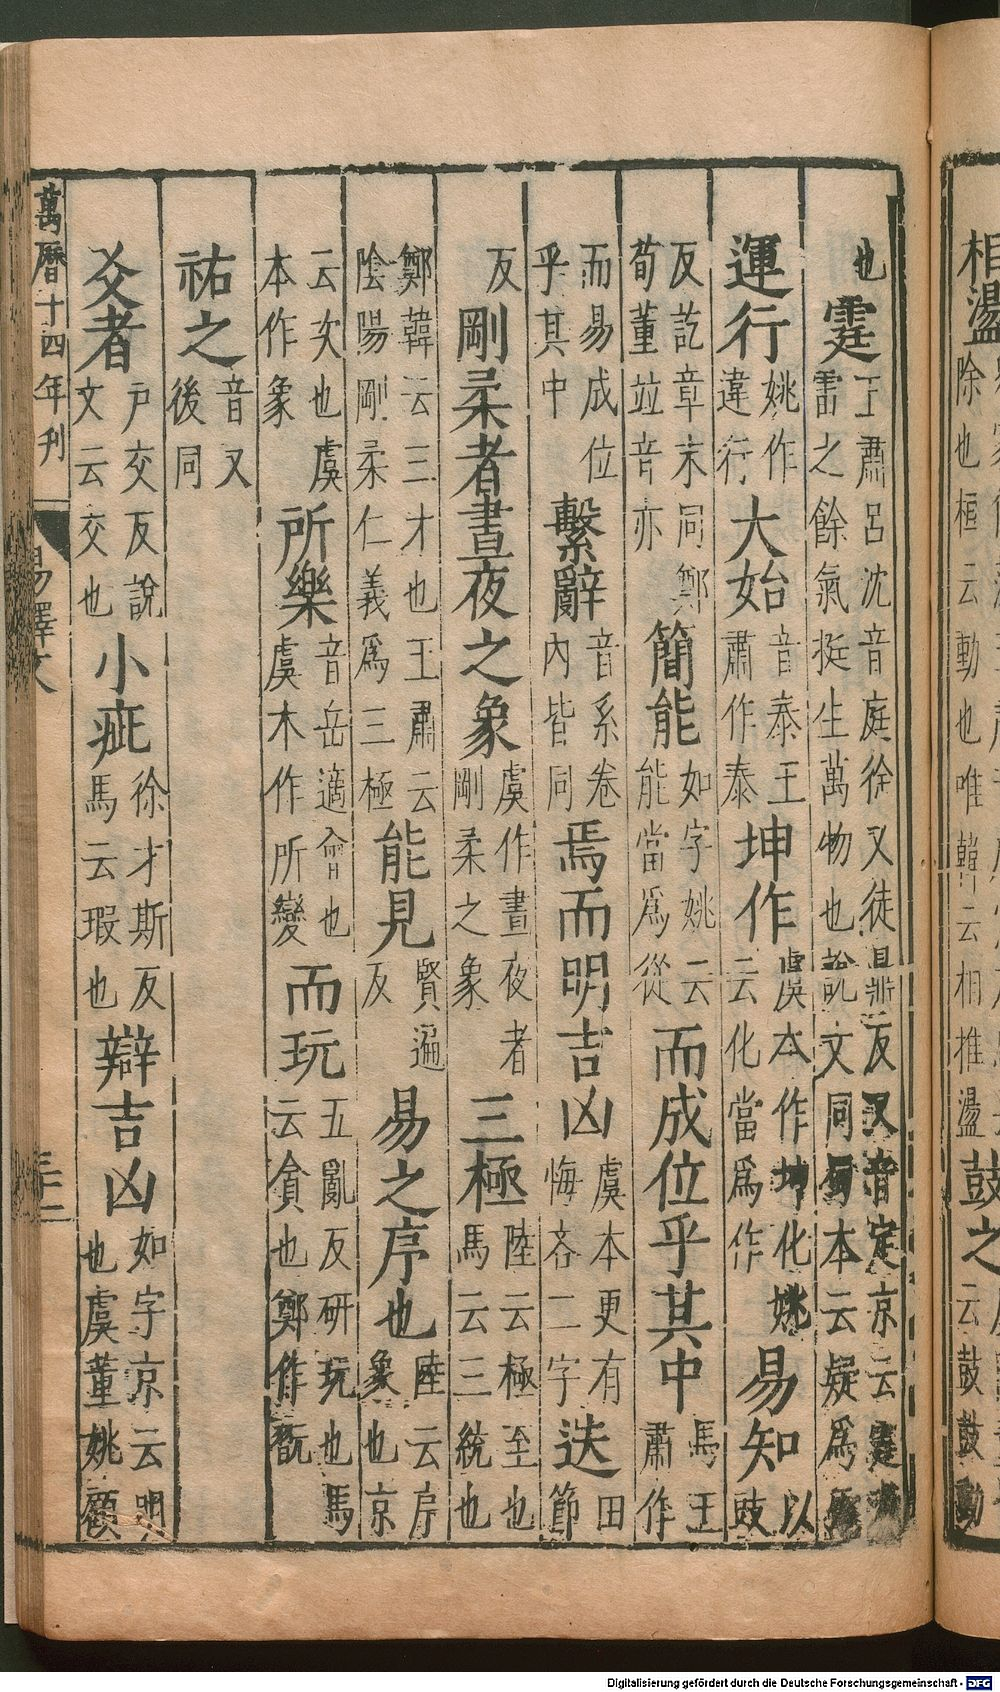 相盪 除也桓云動也唯韓云相推盪 鼓之 云鼓鼓動
也霆王肅呂沈音庭徐又徒鼎反又音定京云霆者雷之餘氣挺生萬物也說文同蜀本云疑為
運行姚作違行大始音泰王肅作泰坤作虞本作坤化姚云化當爲作易知以豉
反訖章末同鄭荀董竝音亦簡能如字姚云能當爲從而成位乎其中馬王肅作
而易成位乎其中繫辭音系卷內皆同焉而明吉凶虞本更有悔吝二字迭田節
反剛柔者晝夜之象虞作晝夜者剛柔之象三極陸云極至也馬云三統也
鄭韓云三才也王肅云陰陽剛柔仁義爲三極能見賢遍反易之序也陸云序象也京
云次也虞本作象所樂音岳適會也虞木作所變而玩五亂反研玩也馬云貪也鄭作翫
祐之音又後同
爻者戶交反說文云交也小疵徐才斯反馬云瑕也辯吉凶如字京云明也虞董姚顧
萬曆十四年刊 易釋文
Digitalisierung gefördert durch die Deutsche Forschungsgemeinschaft - DFG